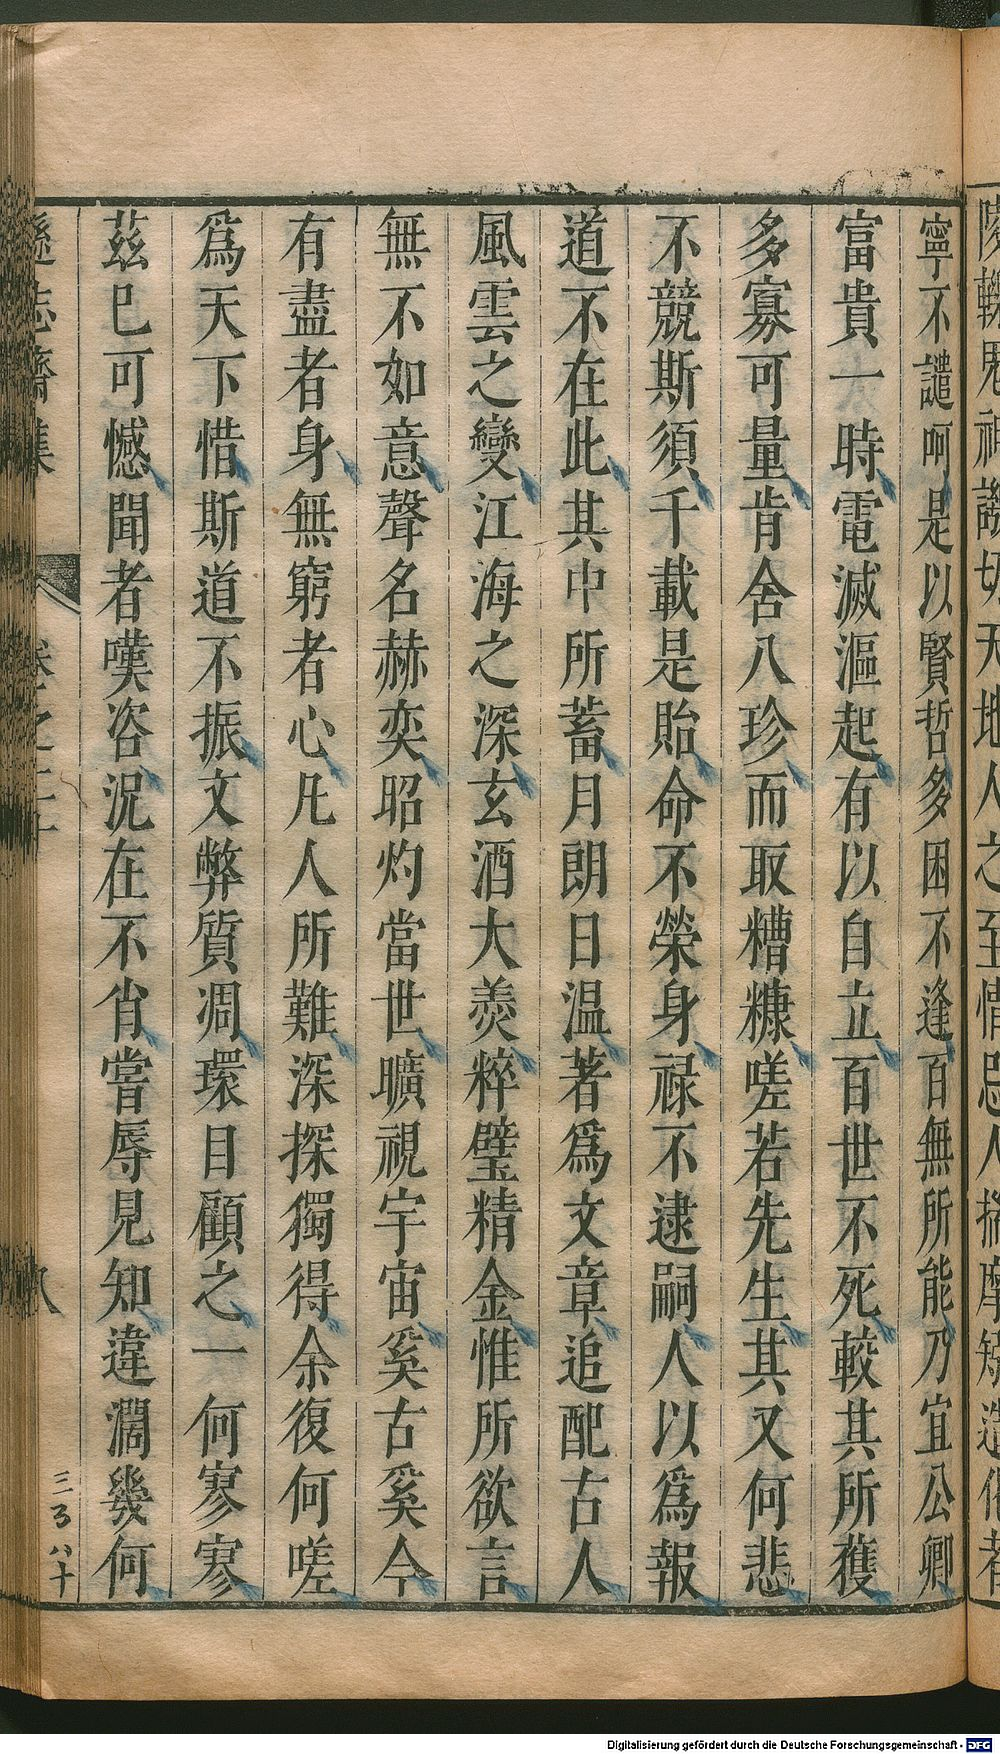 陵轢鬼神譏切天地人之至情忌人揣摩矧造化者
寧不譴呵是以賢哲多困不逢百無所能乃宜公卿
富貴一時電滅漚起有以自立百世不死較其所獲
多寡可量肯舍八珍而取糟糠嗟若先生其又何悲
不競斯須千載是貽命不榮身祿不逮嗣人以爲報
道不在此其中所蓄月朗日温著爲文章追配古人
風雲之變江海之深玄酒大羹粹璧精金惟所欲言
無不如意聲名赫奕昭灼當世曠視宇宙奚古奚今
有盡者身無窮者心凡人所難深探獨得余復何嗟
爲天下惜斯道不振文弊質凋環目顧之一何寥寥
茲已可憾聞者嘆咨況在不肖嘗辱見知違濶幾何
遜志齋集
卷之二十
八
三百八十
Digitalisierung gefördert durch die Deutsche Forschungsgemeinschaft - DFG